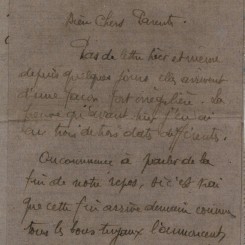 Bien Chers Parents.
Pas de lettre hier et même
depuis quelques jours elles arrivent
d'une façon fort irrégulière. La
preuve qu'avant hier j'en ai
eu trois de trois dates différents.
On commence à parler de la
fin de notre repos, si c'est vrai
que cette fin arrive demain comme
tous les bons tuyaux l'annoncent